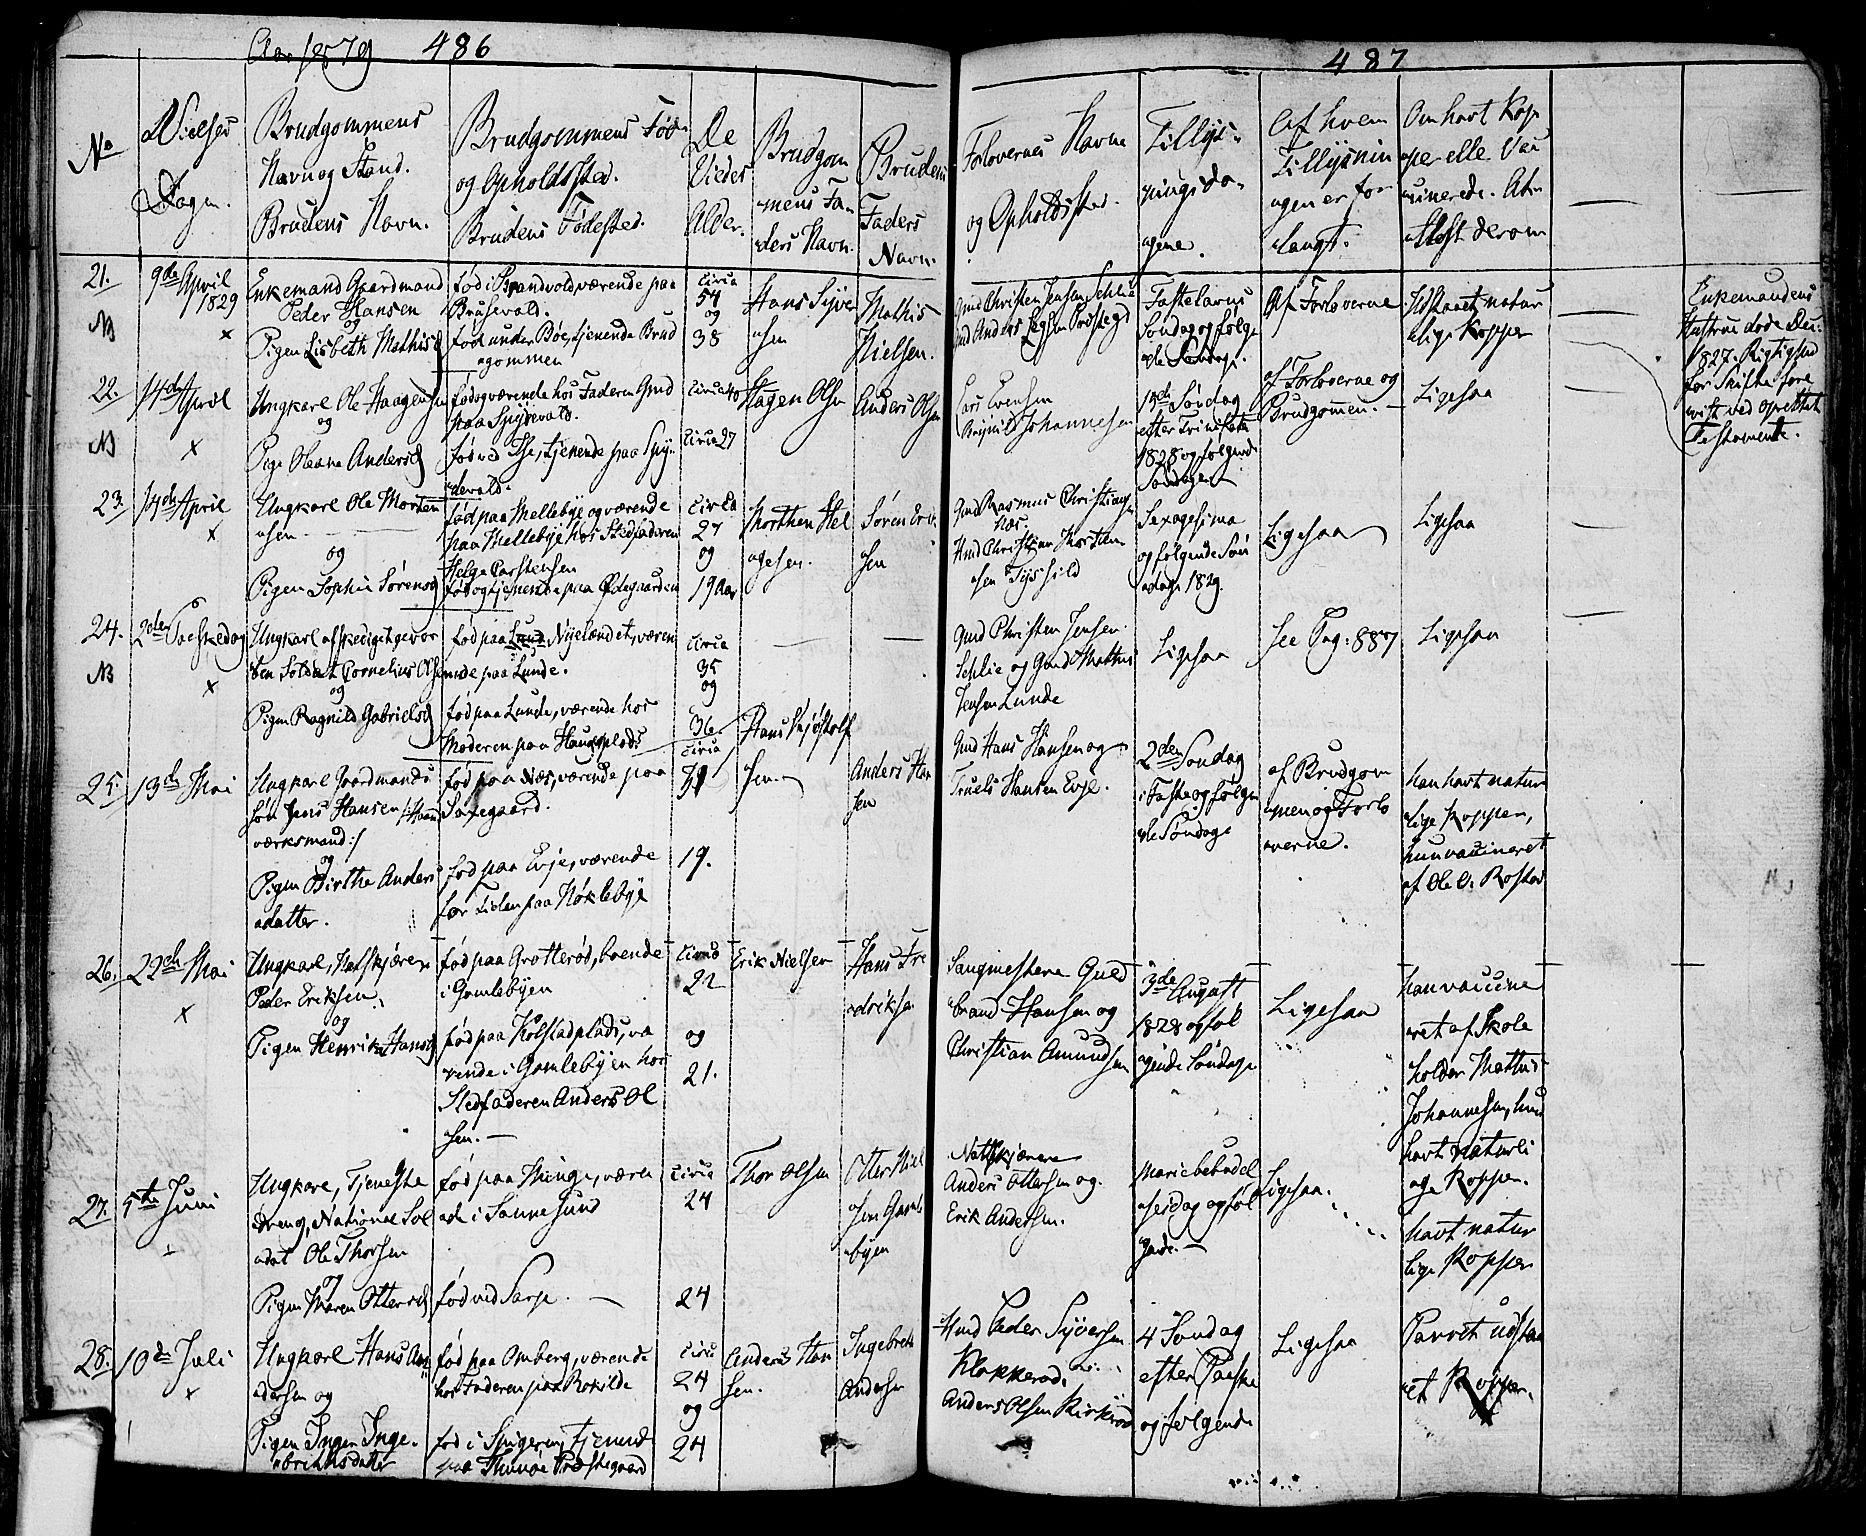 Aar 1829
486
No
Vielses
Dagen.
Brudgommens
Navn og Stand.
Brudens Navn.
Brudgommens Fød
og Opholdsted.
Brudens Fødested.
De
Vieedes
Alder.
Brudgom
mens Fa
ders Navn.
Brudens
Faders
Navn.
21.
9de April
1829
NB
x
Enkemand Gaardmand
Peder Hansen
og
Pigen Lisbeth Mathisd
fød i Brandvold værende paa
Brusevold.
fød under Bøe, tjenende Brud
gommen
circa
54
og
38
Hans Syve
sen
Mathis
Nielsen.
22.
14de April
NB
x
Ungkarl Ole Haagensen
og
Pige Oleana Andersd
fød og værende hos Faderen Gmd
paa Spydevold.
fød ved Thse, tjenende paa Spy
devold.
circa 40
circa 27
Hagen Olsen
Anders Olsen
23.
14de April
x
Ungkarl Ole Morten
sen
og
Pigen Sophie Sørensd
fød paa Mellebye og værende
paa Mellebye hos Stedfaderen
Helge Carstensen
fød og tjenende paa Ødegaarden
circa
27
og
19 Aar
Morthen Hel
gesen.
Søren Eri
sen
24.
2den Paaskedag
NB
x
Ungkarl afskediget gevor
ben Soldat Cornelius Olsen
og
Pigen Ragnild Gabrielsd
fød paa Lund Nyelændet, væren
nde paa Lunde.
fød paa Lunde, værende hos
Moderen paa Haugeplads
circa
35
og
36
25.
13de Mai
Ungkarl Gaardmands
søn Jens Hansen /: Haand
værksmand :/
og
Pigen Birthe Anders
datter.
fød paa Næs, værende paa
Saxegaard.
fød paa Evje, værende
for Tiden paa Nøklebye
circa
31
19.
Hans Kjøstolf
sen
Anders Han
sen
26.
22de Mai
x
Ungkarl, Natskjæren
Peder Eriksen,
og
Pigen Henrika Hansd
fød paa Grotterød, boende
i Gamlebyen
fød paa Kolstadplads, væ
rende i Gamlebyen hos
Stedfaderen Anders Ol
sen.
circa
22
og
21.
Erik Nielsen
Hans Fre
driksen
27.
5te Juni
Ungkarl, Tjeneste
dreng, National Sol
dat Ole Thorsen
og
Pigen Maren Ottersd
fød paa Minge, væren
de i Sannesund
fød ved Sarpe.
circa
24
24
Thor Olsen
Otter Niel
sen Gaml
byen
28.
10de Juli
x
Ungkarl Hans An
dersen og
Pigen Inger Inge
brethsdatter
fød paa Omberg, værende
hos Faderen paa Rokilde
fød i Spigeren, tjenende
paa Thunøe Præstegaard
circa
24
og
24
Anders Han
sen.
Ingebret
Andersen
487
Forlovernes Navne
og Opholdsted.
Tillys
ningsda
gene.
Af hvem
Tillysnin
gen er for
langt.
Om havt Kop
per elle Vac
cinerede. At
test derom
Gmd Christen Jensen Schlie
Gmd Anders
Fastelavns
Søndag og følge
de Søndage.
Af Forloverne
Udstaaet natur
lige Kopper
Enkemandens
Hustrue døde Dec.
1827. Rigtighed
for Skifte fore
vist ved oprettet
Testamente.
Lars Evensen
Johannesen
Søndag
efter Trinitatis
1828 og følgende
Søndage
af Forloverne og
Brudgommen.
Ligesaa
Gmd Rasmus Christians
Næs.
Hmd Christian Morthen
sen
Sexagesima
og følgende Søn
dage 1829.
Ligesaa
Ligesaa
Gmd Christen Jensen
Schlie og Gmd Mathis
Jensen Lunde
Ligesaa
See Pag: 887
Ligesaa
Gmd Hans Hansen og
Truels Hansen Evje.
2den Søndag
i Faste og følgen
de Søndage
af Brudgom
men og Forlo
verne.
han havt natur
lige Kopper,
hun vaccineret
af Ole O. Rostad
Saugmestere Guld
brand Hansen og
Christian Amundsen
3de August
1828 og føl
gende Søndage
Ligesaa
han vaccine
ret af Skole
holder Mathis
Johannesen, hun
havt naturli
ge Kopper.
Natskjærere
Anders Ottersen og
Erik Andersen.
Mariebebudel
sesdag og føl
gende.
Ligesaa.
havt natur
lige Kopper
Hmd Peder Syversen
Klokkerød,
Anders Olsen Kirkerød
4 Søndag
efter Paaske
og følgende
Ligesaa
Parret udstaa
et Kopper.